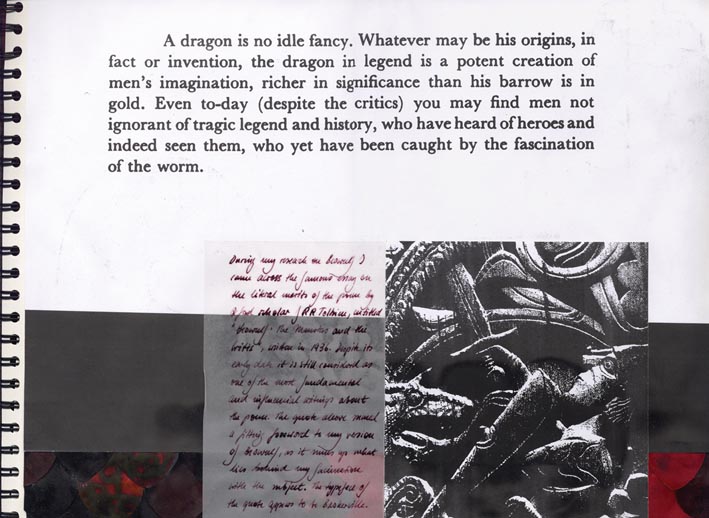 A dragon is no idle fancy. Whatever may be his origins, in
fact or invention, the dragon in legend is a potent creation of
men's imagination, richer in significance than his barrow is in
gold. Even to-day (despite the critics) you may find men not
ignorant of tragic legend and history, who have heard of heroes and
indeed seen them, who yet have been caught by the fascination
of the worm.
During my research on Beowulf I
came across the famous essay on
the literal merits of the poem by
scholar JRR Tolkien, entitled
"Beowulf: The Monsters and the
Critics", written in 1936. Despite its
early date it is still considered as
one of the most fundamental
and influential writings about
the poem. The quote above
a fitting foreword to my version
of Beowulf, as it sums up what
lies behind my fascination
with the subject. The typeface of
the quote appears to be Baskerville.